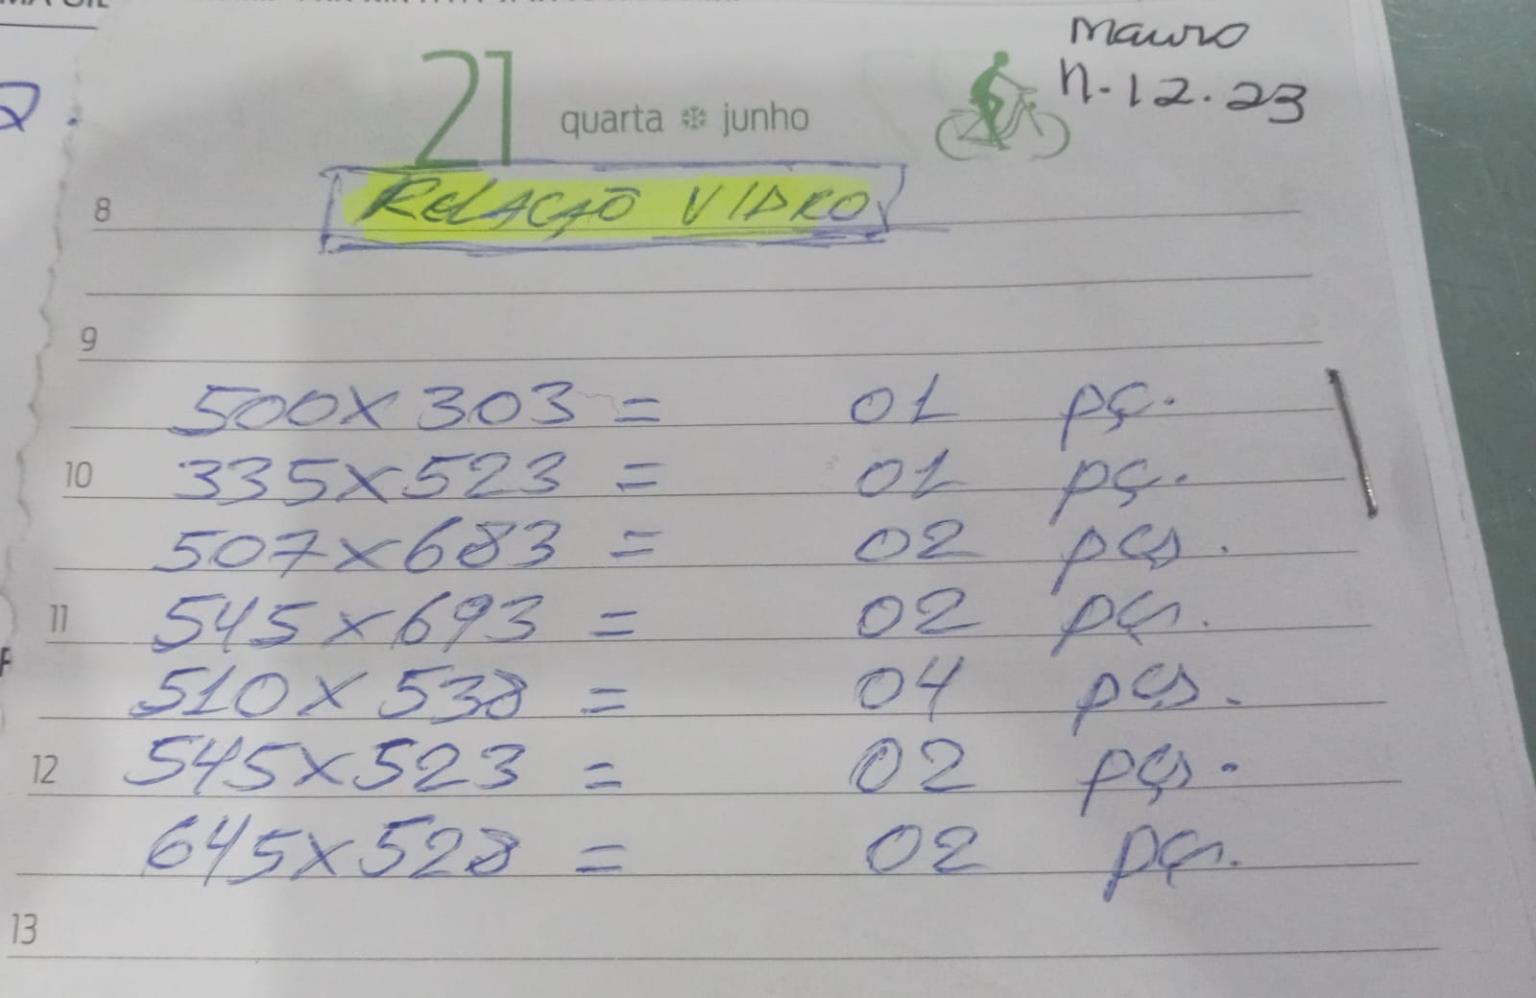 Mauro
11.12.23
21 quarta junho
8
RELAÇÃO VIDRO
9
500x303 = 01 pç.
10 335x523 = 01 pç.
507x683 = 02 pçs.
11 545x693 = 02 pçs.
510x538 = 04 pçs.
12 545x523 = 02 pçs.
645x528 = 02 pçs.
13